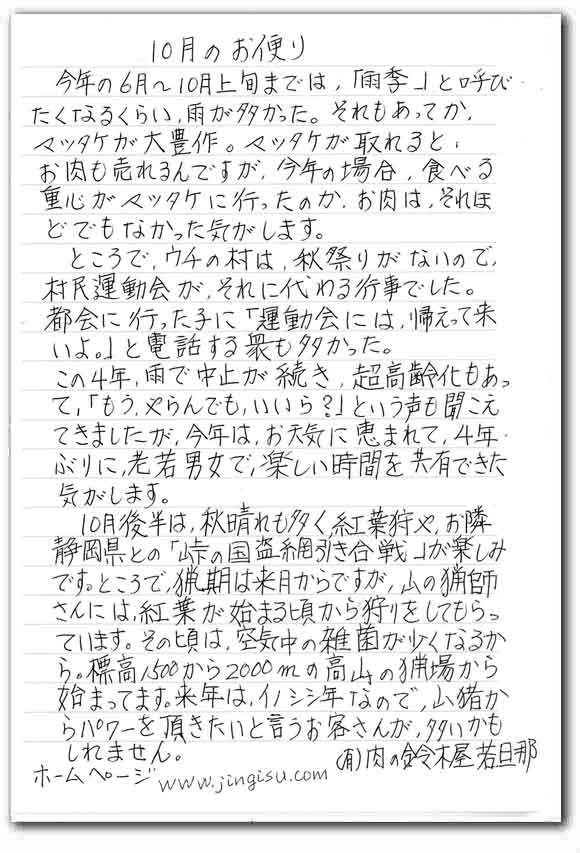 10月のお便り
今年の6月〜10月上旬までは,「雨季」と呼び
たくなるくらい,雨が多かった。それもあってか,
マツタケが大豊作。マツタケが取れると,
お肉も売れるんですが,今年の場合,食べる
重心がマツタケに行ったのか,お肉は,それほ
どでもなかった気がします。
ところで,ウチの村は,秋祭りがないので,
村民運動会が,それに代わる行事でした。
都会に行った子に「運動会には,帰えって来
いよ。」と電話する衆も多かった。
この4年,雨で中止が続き,超高齢化もあっ
て,「もう,やらんでも,いいら?」という声も聞こえ
てきましたが,今年は,お天気に恵まれて,4年
ぶりに,老若男女で,楽しい時間を共有できた
気がします。
10月後半は,秋晴れも多く,紅葉狩や,お隣
静岡県との「峠の国盗綱引き合戦」が楽しみ
です。ところで,猟期は来月からですが,山の猟師
さんには,紅葉が始まる頃から狩りをしてもらっ
ています。その頃は,空気中の雑菌が少くなるか
ら。標高1500から2000mの高山の猟場から
始まってます。来年は,イノシシ年なので,山猪か
らパワーを頂きたいと言うお客さんが,多いかも
しれません。
(有)肉の鈴木屋 若旦那
ホームページ www.jingisu.com